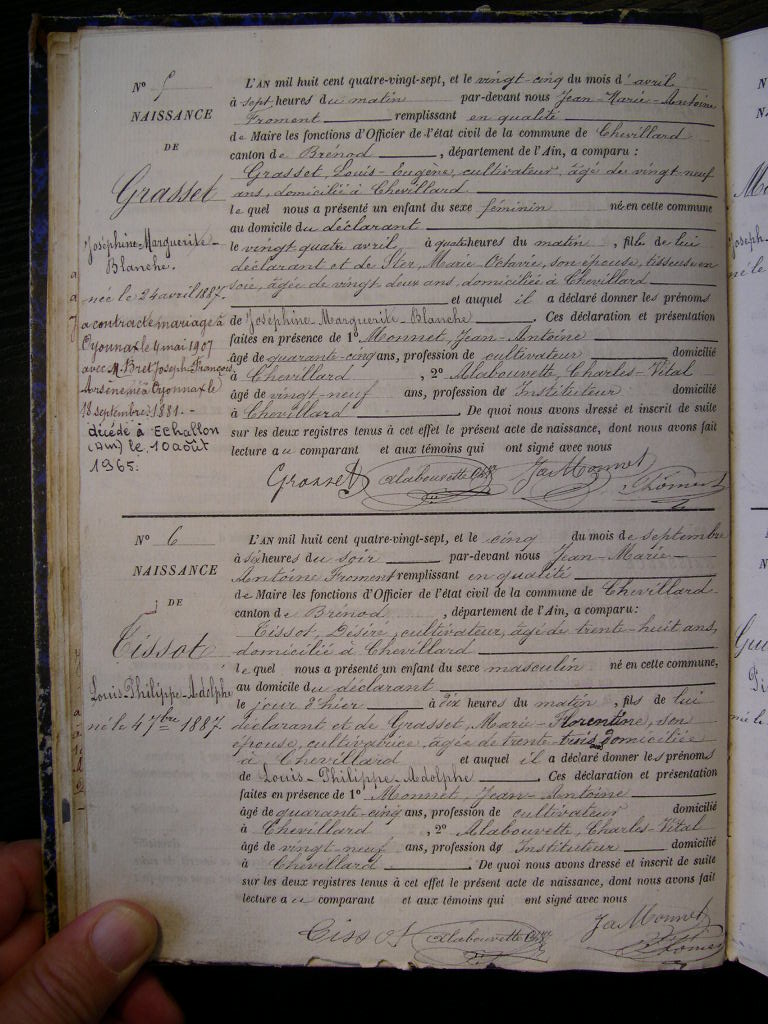 N° 5
NAISSANCE
DE
Grasset
Joséphine-Marguerite-
Blanche.
née le 24 avril 1887.
a contracté mariage à
Oyonnax le 4 mai 1907
avec M. Bret Joseph-François
Arsène né à Oyonnax le
18 septembre 1881.-
décédé à Echallon
(Ain) le 10 août
1965.
L'AN mil huit cent quatre-vingt-sept, et le vingt-cinq du mois d'avril
à sept heures du matin par-devant nous Jean-Marie-Antoine
Froment remplissant en qualité
de Maire les fonctions d'Officier de l'état civil de la commune de Chevillard
canton de Brénod, département de l'Ain, a comparu :
Grasset, Louis-Eugène, cultivateur, âgé de vingt-neuf
ans, domicilié à Chevillard
lequel nous a présenté un enfant du sexe féminin né en cette commune
au domicile du déclarant
le vingt quatre avril, à quatre heures du matin, fille de lui
déclarant et de Ster, Marie-Octavie, son épouse, tisseuse en
soie, âgée de vingt-deux ans, domiciliée à Chevillard
et auquel il a déclaré donner les prénoms
de Joséphine-Marguerite-Blanche. Ces déclaration et présentation
faites en présence de 1° Monnet, Jean-Antoine
âgé de quarante-cinq ans, profession de cultivateur domicilié
à Chevillard, 2° Alabouvette, Charles-Vital
âgé de vingt-neuf ans, profession d' Instituteur domicilié
à Chevillard. De quoi nous avons dressé et inscrit de suite
sur les deux registres tenus à cet effet le présent acte de naissance, dont nous avons fait
lecture au comparant et aux témoins qui ont signé avec nous
Grasset Alabouvette Ch. Ja Monnet Froment
N° 6
NAISSANCE
DE
Tissot
Louis-Philippe-Adolphe
né le 4 7bre 1887
L'AN mil huit cent quatre-vingt-sept, et le cinq du mois de septembre
à six heures du soir par-devant nous Jean-Marie-
Antoine Froment remplissant en qualité
de Maire les fonctions d'Officier de l'état civil de la commune de Chevillard
canton de Brénod, département de l'Ain, a comparu :
Tissot, Désiré, cultivateur, âgé de trente-huit ans,
domicilié à Chevillard
lequel nous a présenté un enfant du sexe masculin né en cette commune,
au domicile du déclarant
le jour d'hier à dix heures du matin, fils de lui
déclarant et de Grasset, Marie-Florentine, son
épouse, cultivatrice, âgée de trente-trois ans domiciliée
à Chevillard et auquel il a déclaré donner les prénoms
de Louis-Philippe-Adolphe. Ces déclaration et présentation
faites en présence de 1° Monnet, Jean-Antoine
âgé de quarante-cinq ans, profession de cultivateur domicilié
à Chevillard, 2° Alabouvette, Charles-Vital
âgé de vingt-neuf ans, profession d' Instituteur domicilié
à Chevillard. De quoi nous avons dressé et inscrit de suite
sur les deux registres tenus à cet effet le présent acte de naissance, dont nous avons fait
lecture au comparant et aux témoins qui ont signé avec nous
Tissot Alabouvette Ch. Ja Monnet Froment